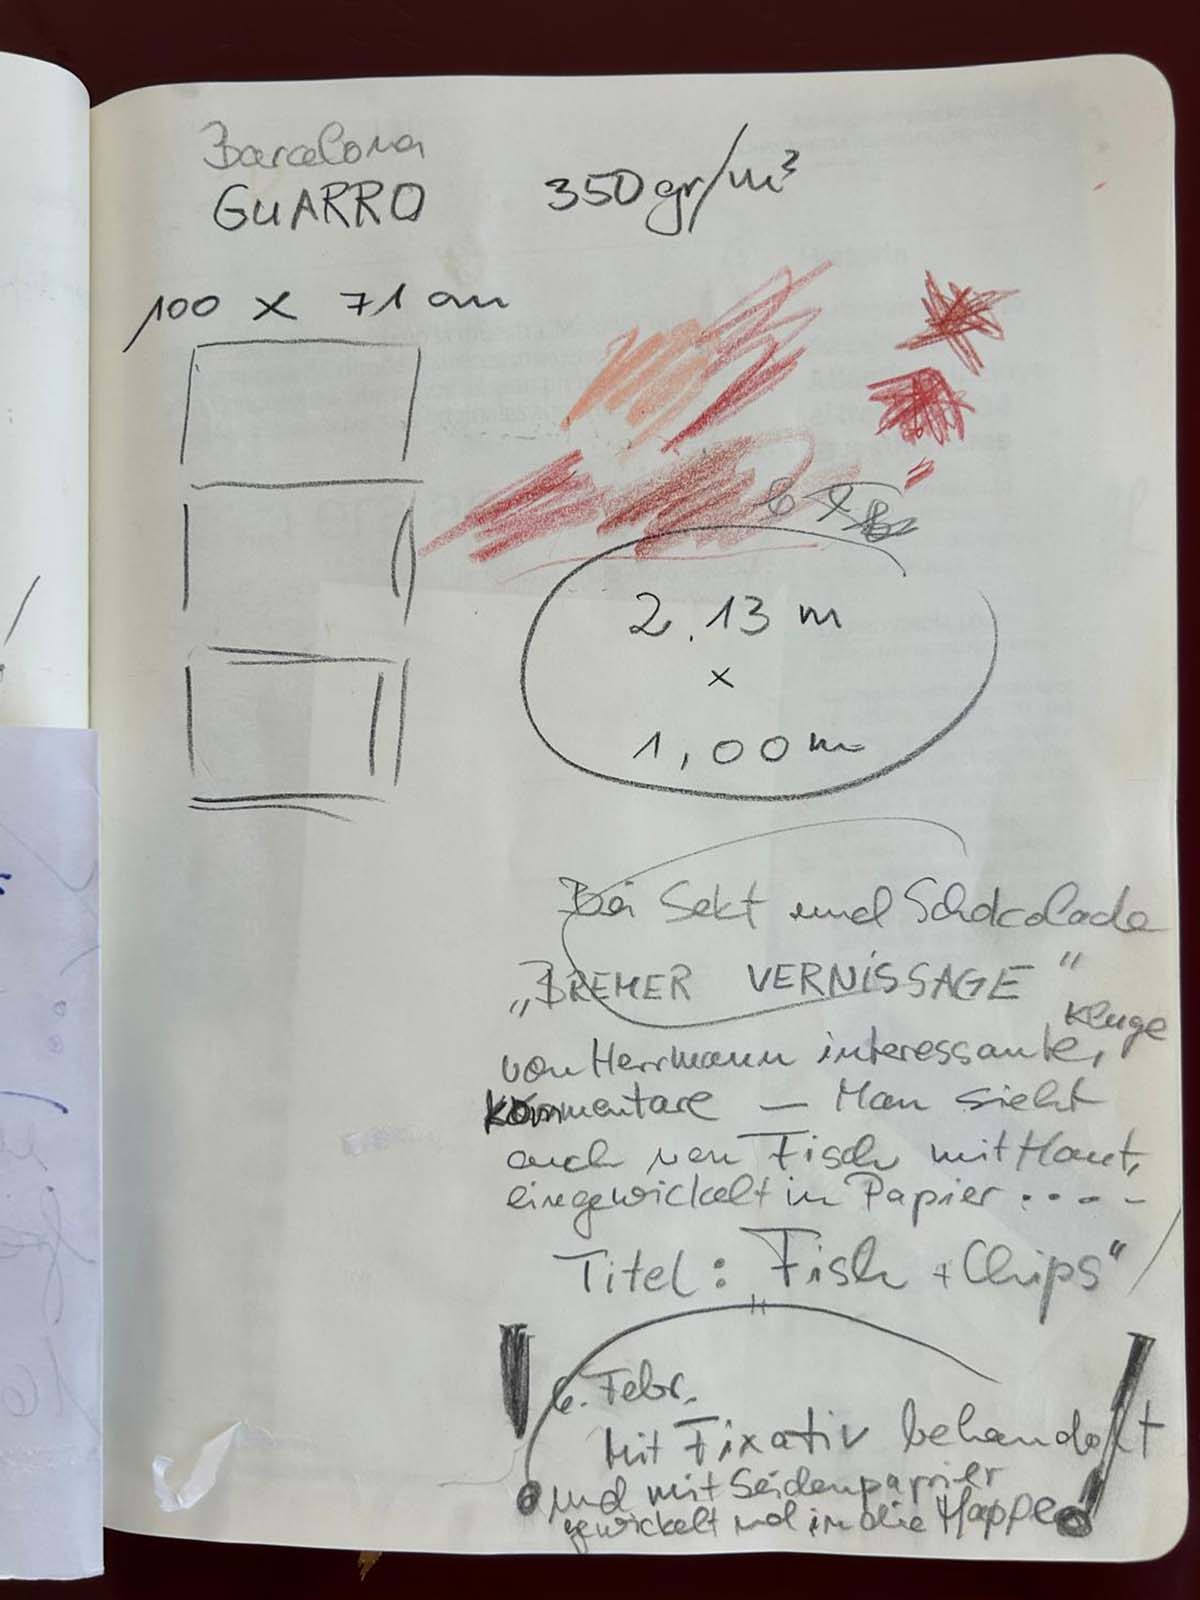 Barcelona
GUARRO 350 gr/m²
100 x 71 cm
6 x
2.13 m
x
1,00 m
Bei Sekt und Schokolade
„BREMER VERNISSAGE"
Kluge
von Herrmann interessante,
Kommentare — Man sieht
auch nen Fisch mit Haut,
eingewickelt in Papier ....-
Titel: Fish + Chips"
6. Febr.
Mit Fixativ behandelt
und mit Seidenpapier
gewickelt und in die Mappe